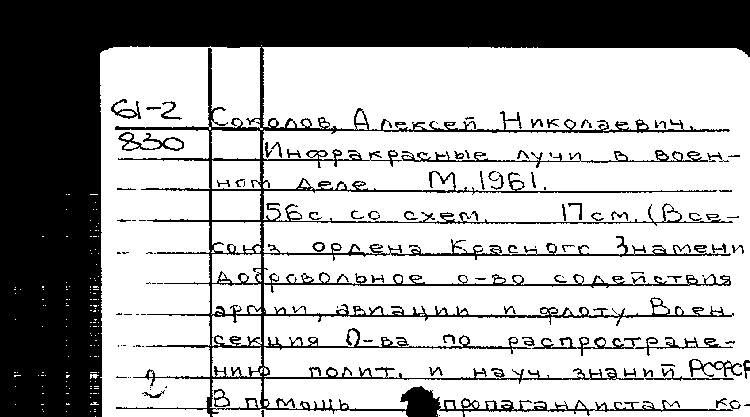 61-2 Соколов, Алексей Николаевич.
830 Инфракрасные лучи в воен-
ном деле. М., 1961.
56 с. со схем. 17 см. (Все-
союз. ордена Красного Знамени
добровольное о-во содействия
армии, авиации и флоту. Воен.
секция О-ва по распростране-
нию полит. и науч. знаний РСФСР
В помощь пропагандистам ко-